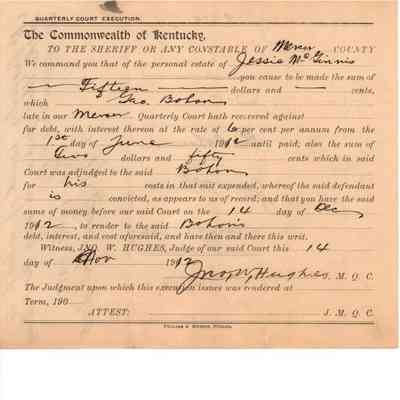 QUARTERLY COURT EXECUTION.
The Commonwealth of Kentucky,
TO THE SHERIFF OR ANY CONSTABLE OF Mercer COUNTY
We command you that of the personal estate of Jessie McGinnis
you cause to be made the sum of
Fifteen dollars and — cents,
which Geo. Bohon
late in our Mercer Quarterly Court hath recovered against
for debt, with interest thereon at the rate of 6 per cent per annum from the
1st day of June 1912 until paid; also the sum of
Two dollars and fifty cents which in said
Court was adjudged to the said Bohon
for his costs in that suit expended, whereof the said defendant
is convicted, as appears to us of record; and that you have the said
sums of money before our said Court on the 14 day of Dec
1912, to render to the said Bohon's
debt, interest, and cost aforesaid, and have then and there this writ.
Witness, JNO. W. HUGHES, Judge of our said Court this 14
day of Nov 1912
Jno. W. Hughes, M. Q. C.
The Judgment upon which this execution issues was rendered at
Term, 190
ATTEST: J. M. Q. C.